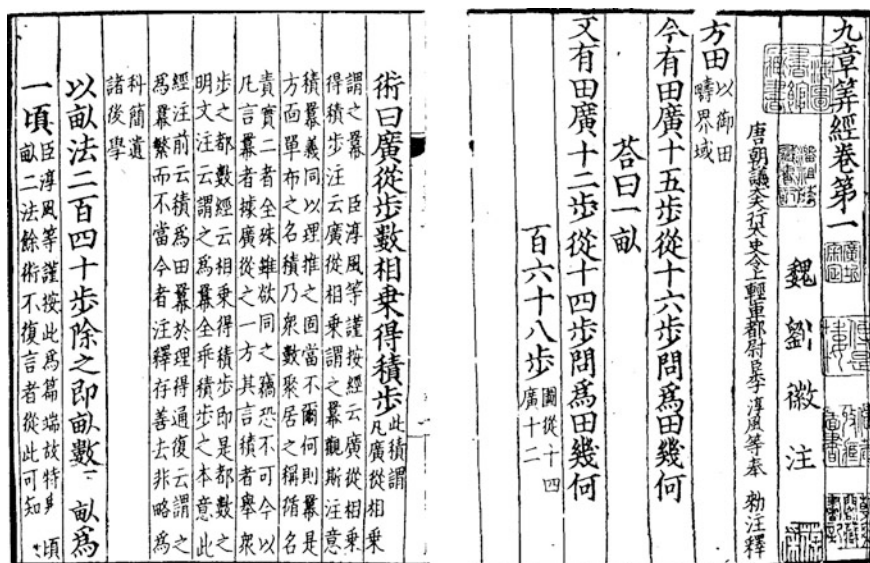 九章筭經卷第一
魏劉徽注
唐朝議大夫行太史令上輕車都尉臣李淳風等奉 勑注釋
方田以御田
疇界域
今有田廣十五步從十六步問爲田幾何
荅曰一畝
又有田廣十二步從十四步問爲田幾何
百六十八步圖從十四
廣十二
術曰廣從步數相乗得積步此積謂
凡廣從相乗
謂之冪 臣淳風等謹按經云廣從相乗
得積步注云廣從相乗謂之冪觀斯注意
積冪義同以理推之固當不爾何則冪是
方面單布之名積乃衆數聚居之稱循名
責實二者全殊雖欲同之竊恐不可今以
凡言冪者據廣從之一方其言積者舉衆
步之都數經云相乗得積步即是都數之
明文注云謂之爲冪全乖積步之本意此
經注前云積爲田冪於理得通復云謂之
爲冪繁而不當今者注釋存善去非略爲
科簡遺
諸後學
以畝法二百四十步除之即畝數 畝爲
一頃臣淳風等謹按此爲篇端故特 頃
畝二法餘術不復言者從此可知